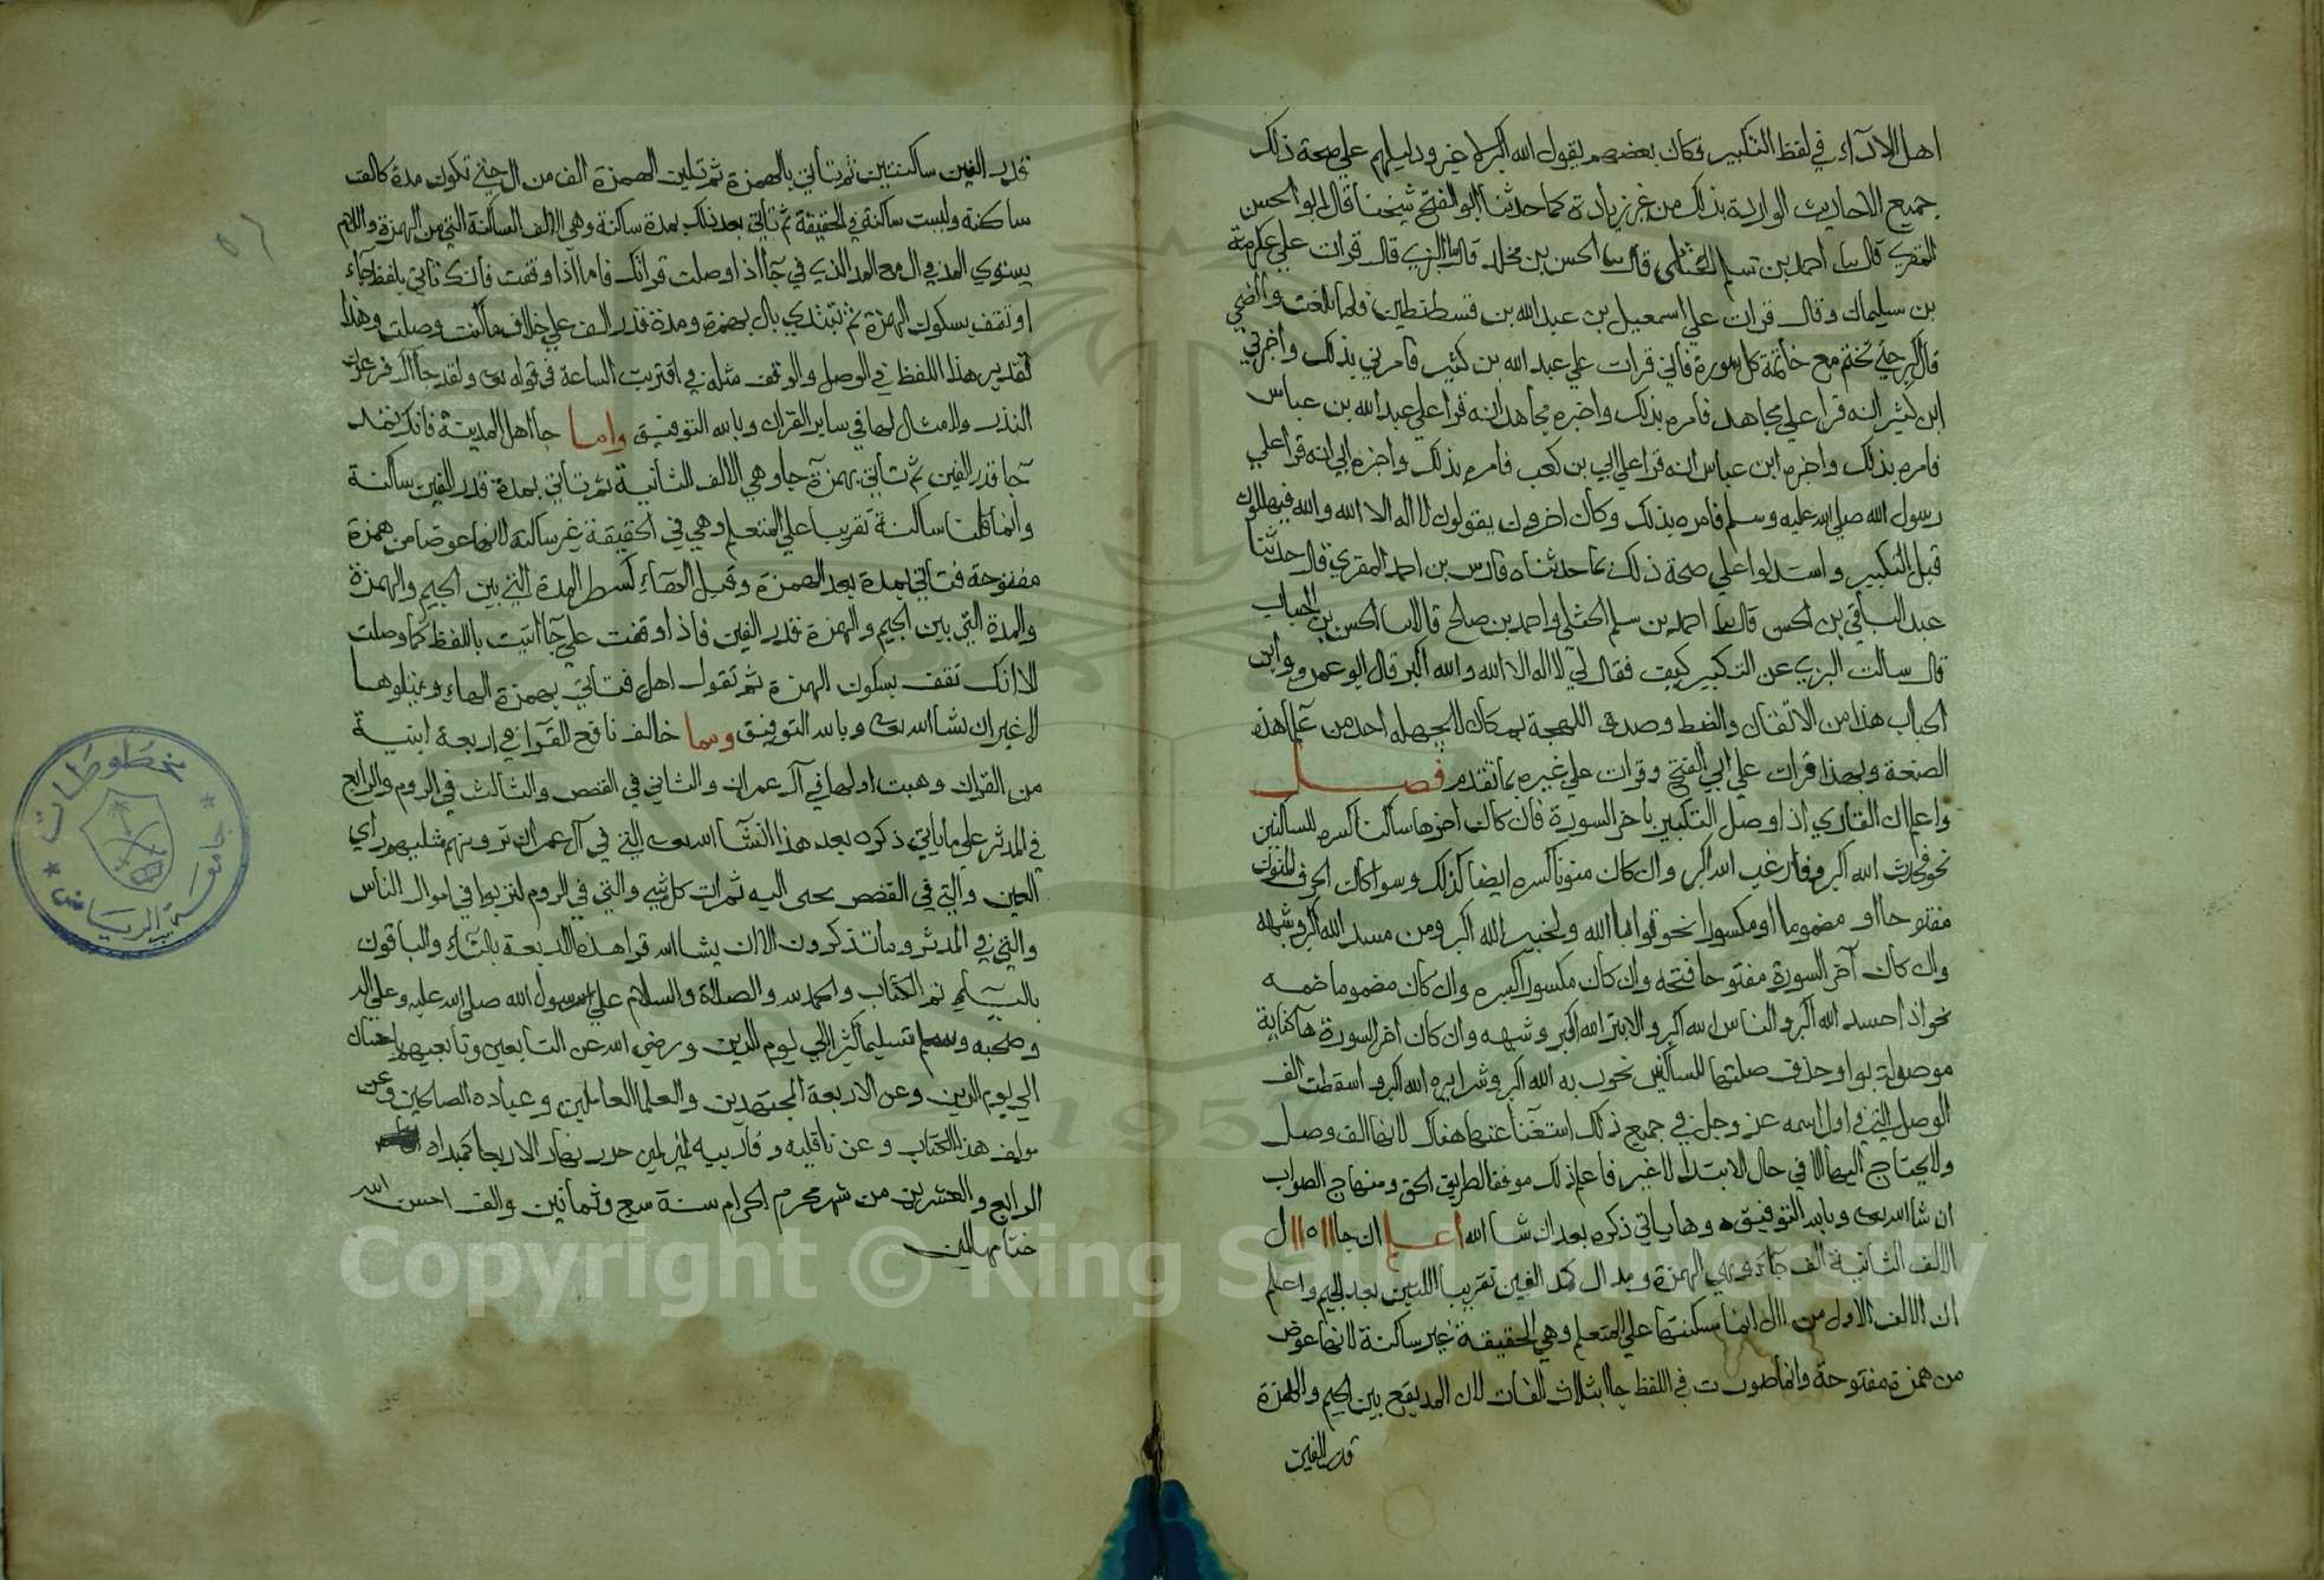 اهل الادآء في لفظ التكبير فكان بعضهم يقول الله اكبر لا غير ودليلهم علي صحة ذلك
جميع الاحاديث الواردة بذلك من غير زيادة كما حدثنا ابو الفتح شيخنا قال ابو الحسن
المقري قال احمد بن سلم الختلى قال الحسن بن مخلد قال البزي قال قرات علي عكرمة
بن سليمان وقال قرات علي اسمعيل بن عبد الله بن قسطنطين فلما بلغت والضحي
قال كبر حتي تختم مع خاتمة كل سورة فاني قرات علي عبد الله بن كثير فامرني بذلك واخبرني
ابن كثير انه قرا علي مجاهد فامره بذلك واخبره مجاهد انه قرا علي عبد الله بن عباس
فامره بذلك واخبره ابن عباس انه قرا علي ابي بن كعب فامره بذلك واخبره ابي انه قرا علي
رسول الله صلي الله عليه وسلم فامره بذلك وكان اخرون يقولون لا اله الا الله والله فيهللون
قبل التكبير واستدلوا علي صحة ذلك بما حدثناه فارس بن احمد المقري قال حدثنا
عبد الباقي بن الحسن قال احمد بن سلم الختلي واحمد بن صالح قالا الحسن بن الحباب
قال سالت البزي عن التكبير كيف فقال لي لا اله الا الله والله اكبر قال ابو عمرو وابن
الحباب هذا من الاتقان والضبط وصدق اللهجة بمكان لا يجهله احد من علما هذه
الصنعة وبهذا قرات علي ابي الفتح وقرات علي غيره بما تقدم فصل
واعلم ان القاري اذا وصل التكبير باخر السورة فان كان اخرها ساكنا كسره للساكنين
نحو فحدث الله اكبر وفارغب الله اكبر وان كان منونا كسره ايضا كذلك وسوا كان الحرف المنون
مفتوحا او مضموما او مكسورا نحو توابا الله ولخبير الله اكبر ومن مسد الله اكبر وشبهه
وان كان آخر السورة مفتوحا فتحه وان كان مكسورا كسره وان كان مضموما ضمه
نحو اذا حسد الله اكبر والناس الله اكبر والابتر الله اكبر وشبهه وان كان اخر السورة هآ كناية
موصولة بواو حذف صلتها للساكنين نحو ربه الله اكبر وشرا يره الله اكبر واسقطت الف
الوصل التي في اول اسمه عز وجل في جميع ذلك استغنآ عنها هناك لانها الف وصل
ولا يحتاج اليها الا في حال الابتدا لا غير فاعلم ذلك موفقا لطريق الحق ومنهاج الصواب
ان شا الله تعى وبالله التوفيق وها ياتي ذكره بعد ان شا الله اعلم ان جا اا ه اا ال
الالف الثانية الف جآء وهي الهمزة ومد ال كمد الفين تقريبا اللتين بعد الجيم واعلم
ان الالف الاول من اال انما سكنتها علي المتعلم وهي الحقيقة غير ساكنة لانها عوض
من همزة مفتوحة وانما صورت في اللفظ جاا بثلاث الفات لان المد يقع بين الجيم والهمزة
قدر الفين
قدر الفين ساكنتين ثم تاتي بالهمزة ثم تلين الهمزة الف من ال حتي تكون مدة كالف
ساكنة وليست ساكنة في الحقيقة ثم تاتي بعد ذلك بمدة ساكنة وهي الالف الساكنة التي من الهمزة واللام
يستوي المد في ال مع المد الذي في جآ اذا وصلت قراتك فاما اذا وقفت فانك تاتي بلفظ جاء
او تقف بسكون الهمزة ثم تبتدي بال بهمزة ومدة قدر الف علي خلاف ما كنت وصلت وهذا
تقدير هذا اللفظ في الوصل والوقف مثله في اقتربت الساعة في قوله تعى ولقد جآ آل فرعون
النذر والامثال لها في ساير القران وبالله التوفيق واما جا اهل المدينة فانك تمد
جآ قدر الفين ثم تاتي بهمزة جا وهي الالف الثانية ثم تاتي بمدة قدر الفين ساكنة
وانما قلنا ساكنة تقريبا علي المتعلم وهي في الحقيقة غير ساكنة لانها عوضا من همزة
مفتوحة فتاتي بمدة بعد الهمزة وقبل الهآء كشطر المدة التي بين الجيم والهمزة
والمدة التي بين الجيم والهمزة قدر الفين فاذا وقفت علي جآ اتيت باللفظ كما وصلت
الا انك تقف بسكون الهمزة ثم تقول اهل فتاتي بهمزة الهاء ويتلوها
لا غير ان شا الله تعى وبالله التوفيق ومما خالف نافع القرآ في اربعة ابنية
من القران وهبت اولها في آل عمران والثاني في القصص والثالث في الروم والرابع
في المدثر علي ما ياتي ذكره بعد هذا ان شآ الله تعى التي في آل عمران ترونهم مثليهم راي
العين والتي في القصص يجى اليه ثمرات كل شي والتي في الروم لتربوا في اموال الناس
والتي في المدثر وما تذكرون الا ان يشا الله قرا هذه الاربعة بالتآء والباقون
باليآء تم الكتاب والحمد لله والصلاة والسلام علي رسول الله صلى الله عليه وعلي اله
وصحبه وسلم تسليما كثيرا الي يوم الدين ورضي الله عن التابعين وتابعيهم باحسان
الي يوم الدين وعن الاربعة المجتهدين والعلما العاملين وعباده الصالحين وعن
مولف هذا الكتاب وعن ناقليه وقاريه امين حرر نهار الاربعا
الرابع والعشرين من شهر محرم الحرام سنة سبع وثمانين والف احسن الله
ختامها امين
مخطوطات
جامعة الرياض
Copyright © King Saud University
1957